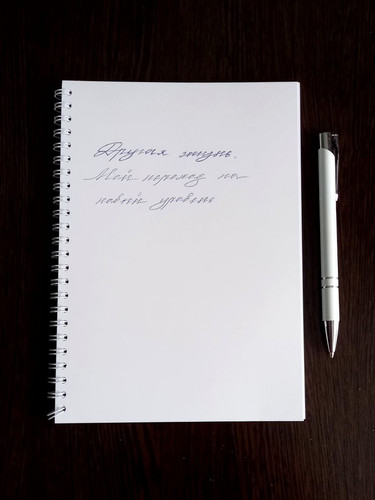 Другая жизнь.
Мой переход на
новый уровень